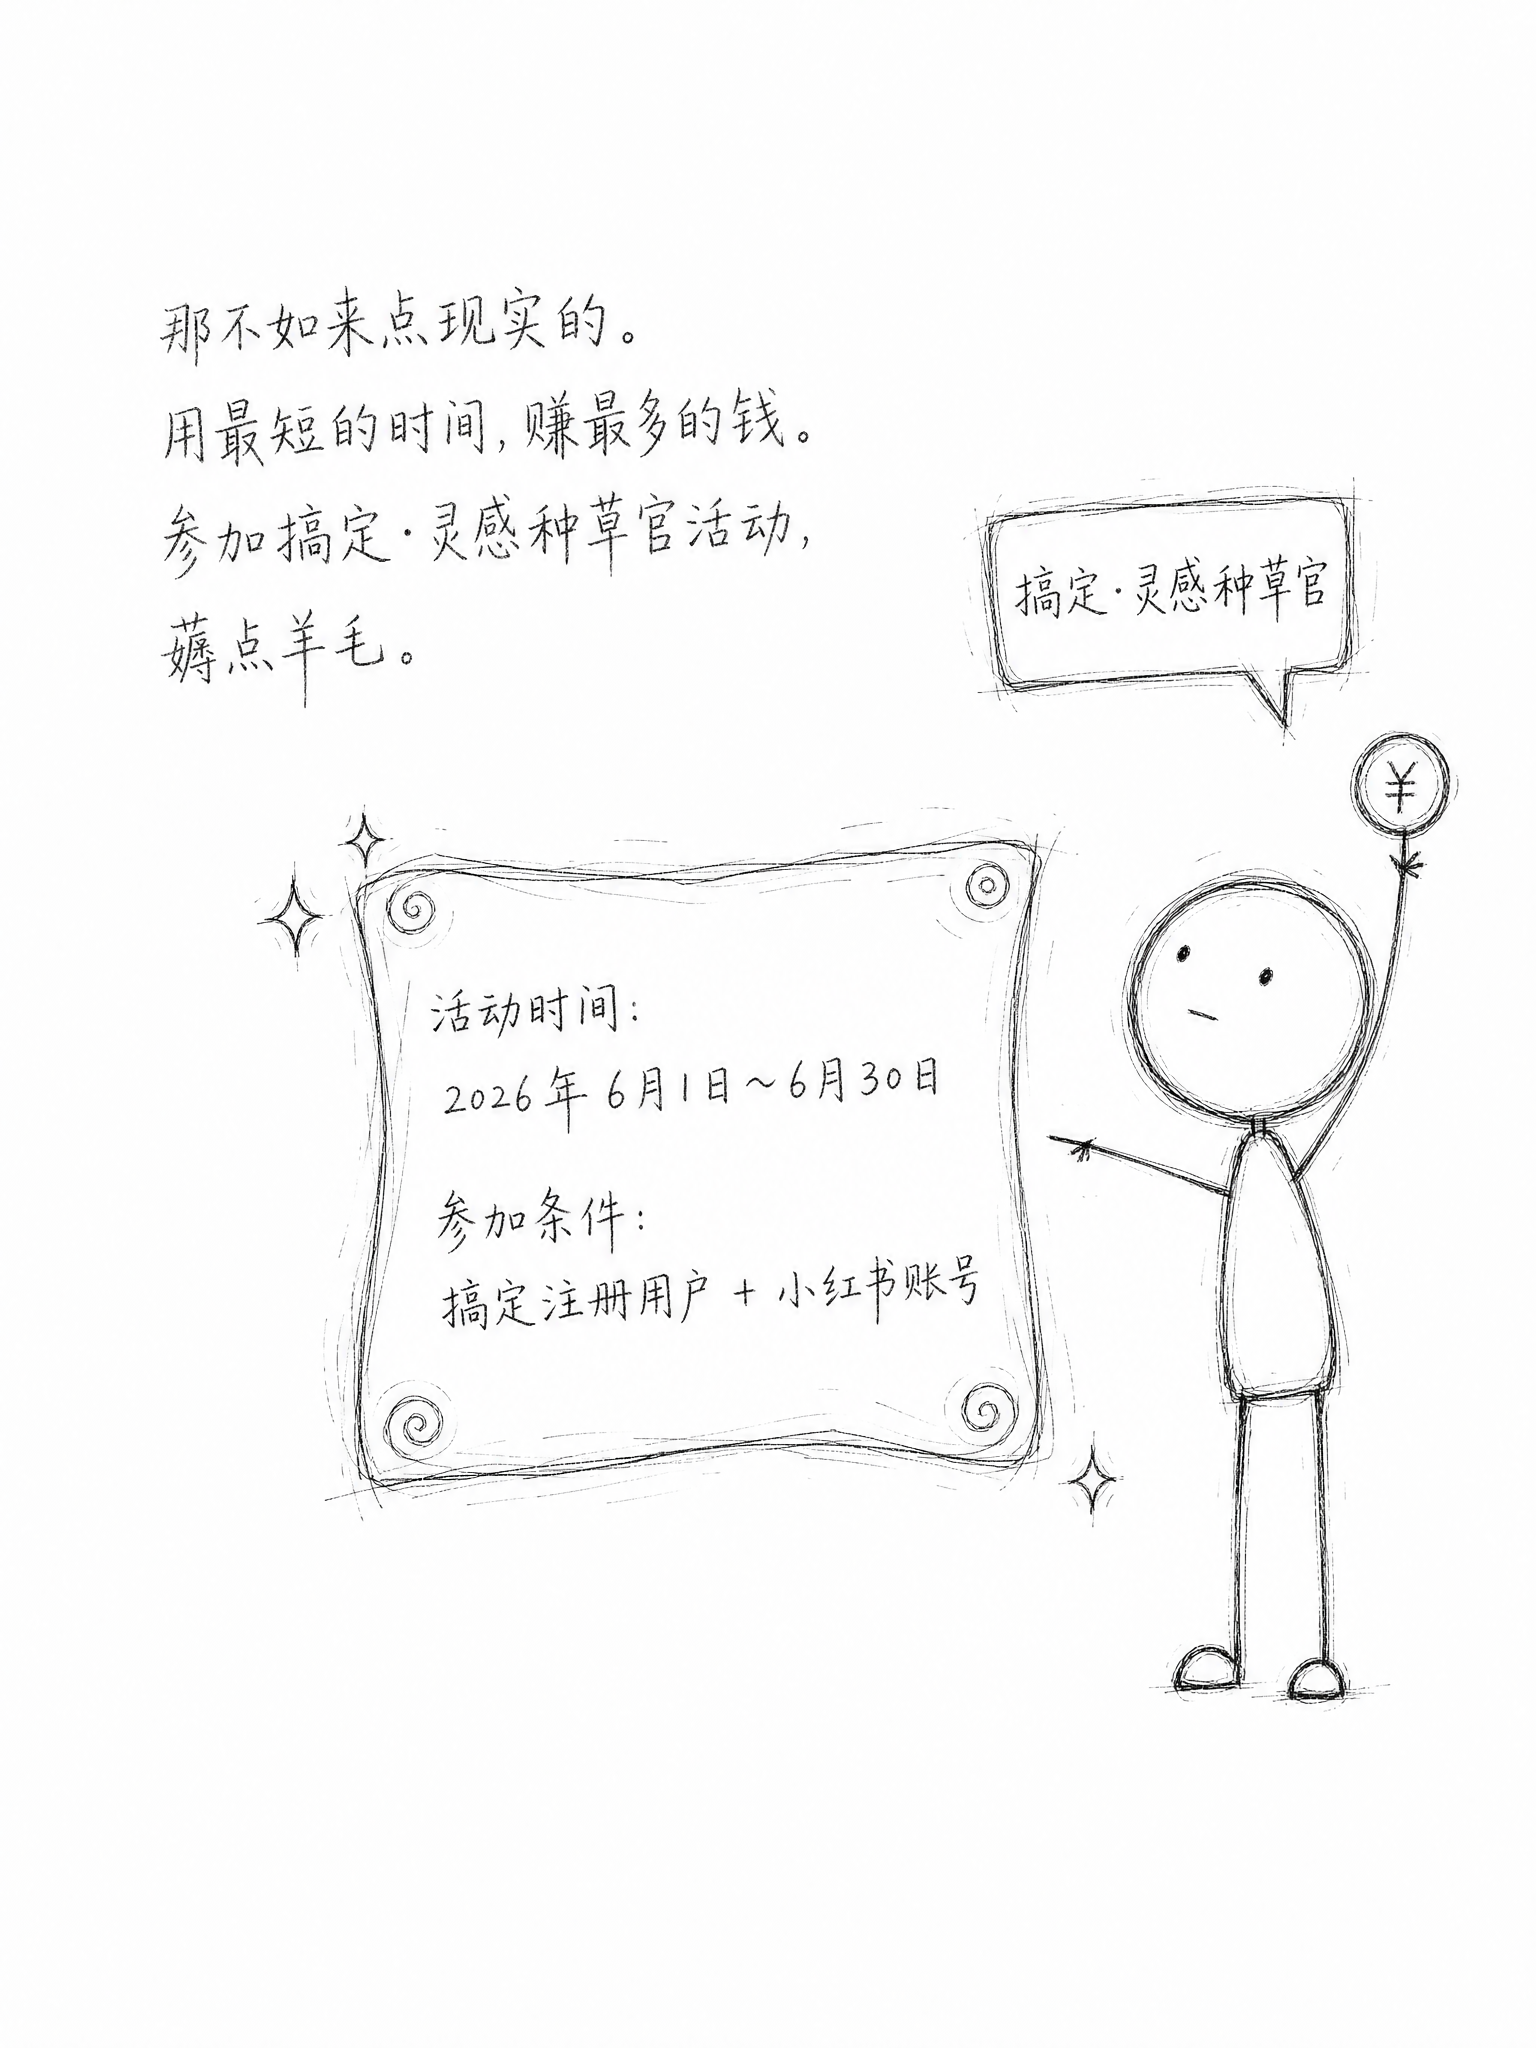 那不如来点现实的。
用最短的时间,赚最多的钱。
参加搞定·灵感种草官活动,
薅点羊毛。
搞定·灵感种草官
¥
活动时间:
2026年6月1日~6月30日
参加条件:
搞定注册用户 + 小红书账号